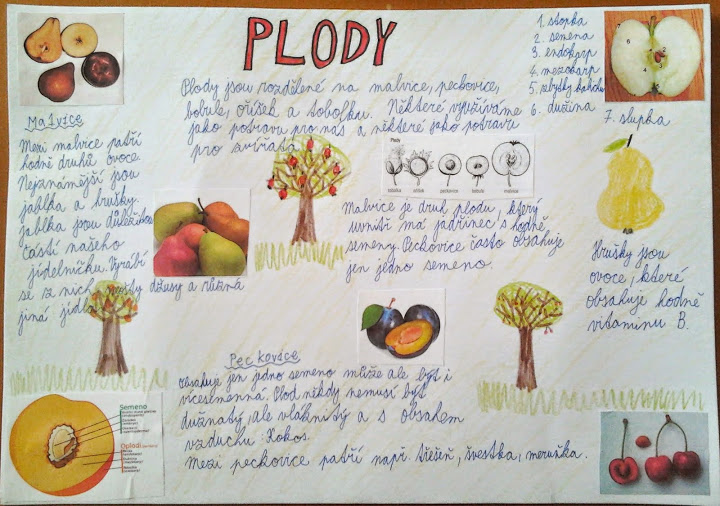 PLODY
Plody jsou rozdělené na malvice, peckovice,
bobule, oříšek a tobolku. Některé využíváme
jako potravu pro nás a některé jako potravu
pro zvířata
1. stopka
2. semena
3. endokarp
4. mezokarp
5. zbytky kalichu
6. dužina
7. slupka
Malvice
Mezi malvice patří
hodně druhů ovoce.
Nejznámější jsou
jablka a hrušky.
jablka jsou důležitou
částí našeho
jídelníčku. Vyrábí
se iz nich mošty džusy a různá
jiná jídla
Plody
tobolka oříšek peckovice bobule malvice
Malvice je druh plodu, který
uvnitř má jádřinec s hodně
semeny. Peckovice často obsahuje
jen jedno semeno.
Hrušky jsou
ovoce, které
obsahuje hodně
vitaminu B.
Peckovice
Obsahuje jen jedno semeno může ale být i
vícesemenná. Plod někdy nemusí být
dužnatý, ale vláknitý a s obsahem
vzduchu: Kokos.
Mezi peckovice patří např. třešeň, švestka, meruňka.
Semeno
Oplodí